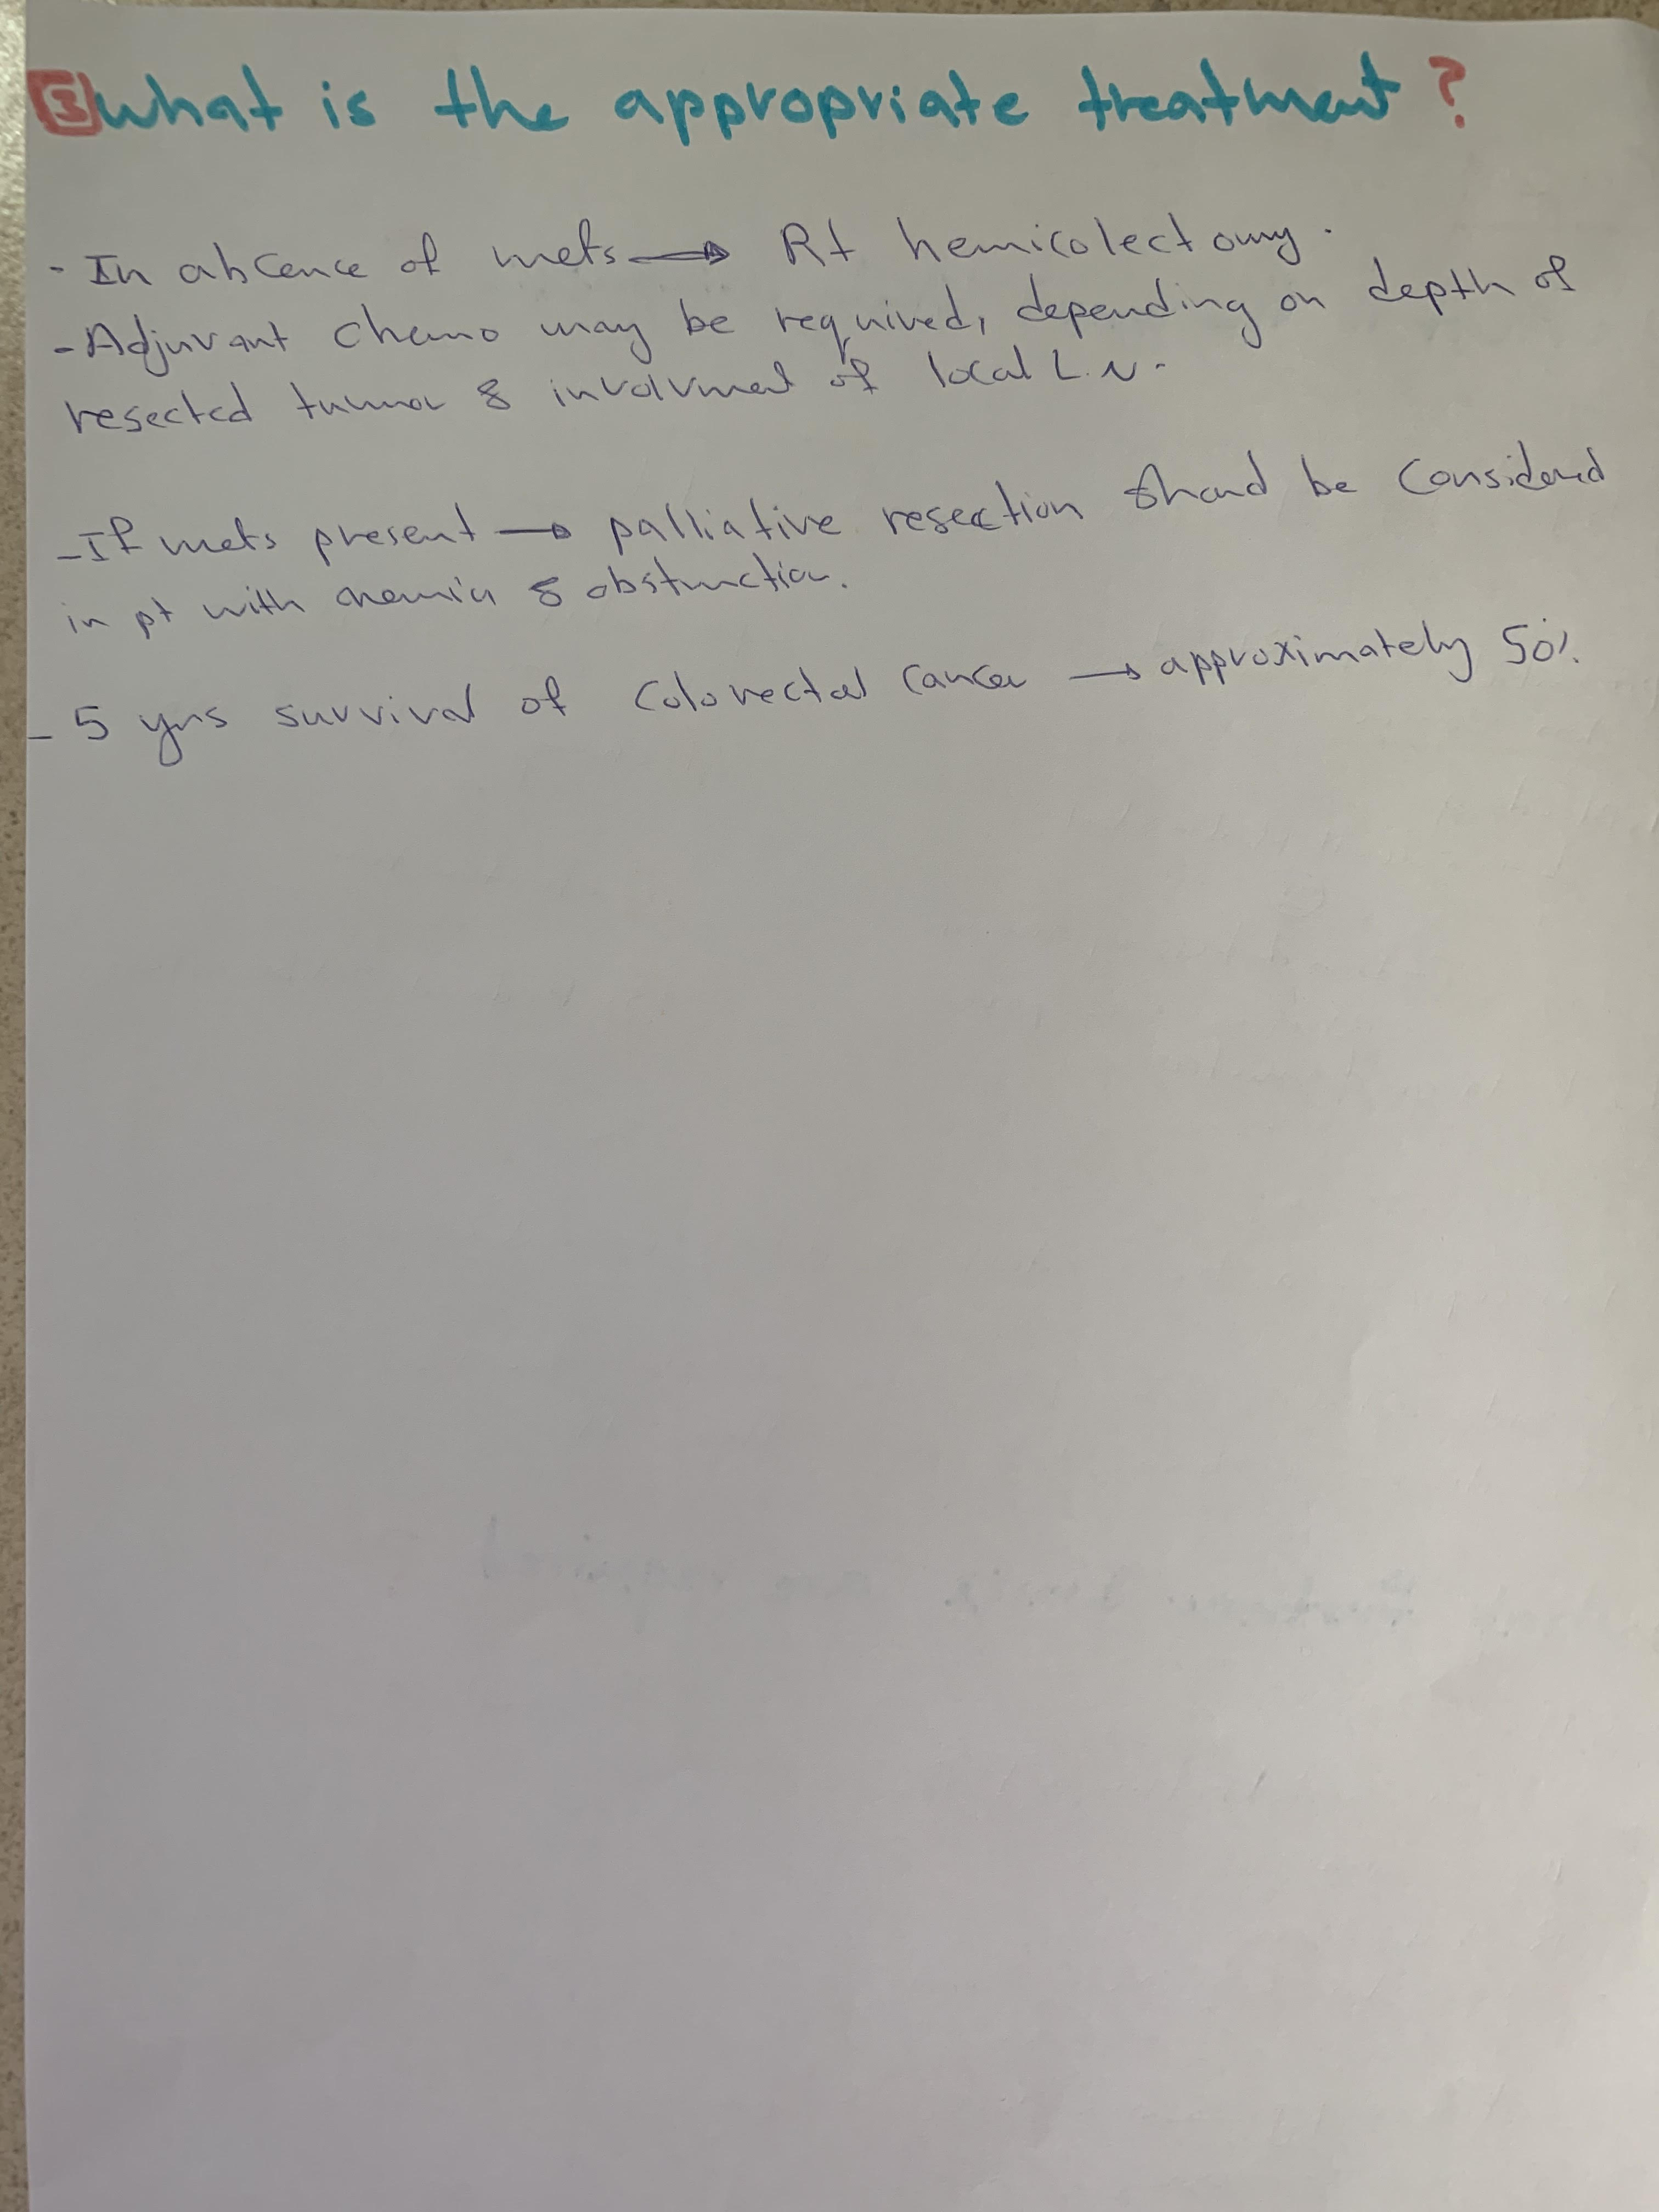 3 What is the appropriate treatment?
- In abcence of mets → Rt hemicolectomy.
- Adjuvant chemo may be required, depending on depth of
resected tumor & involvment of local L.N.
- If mets present → palliative resection should be considered
in pt with anemia & obstruction.
- 5 yrs survival of colorectal cancer → approximately 50%